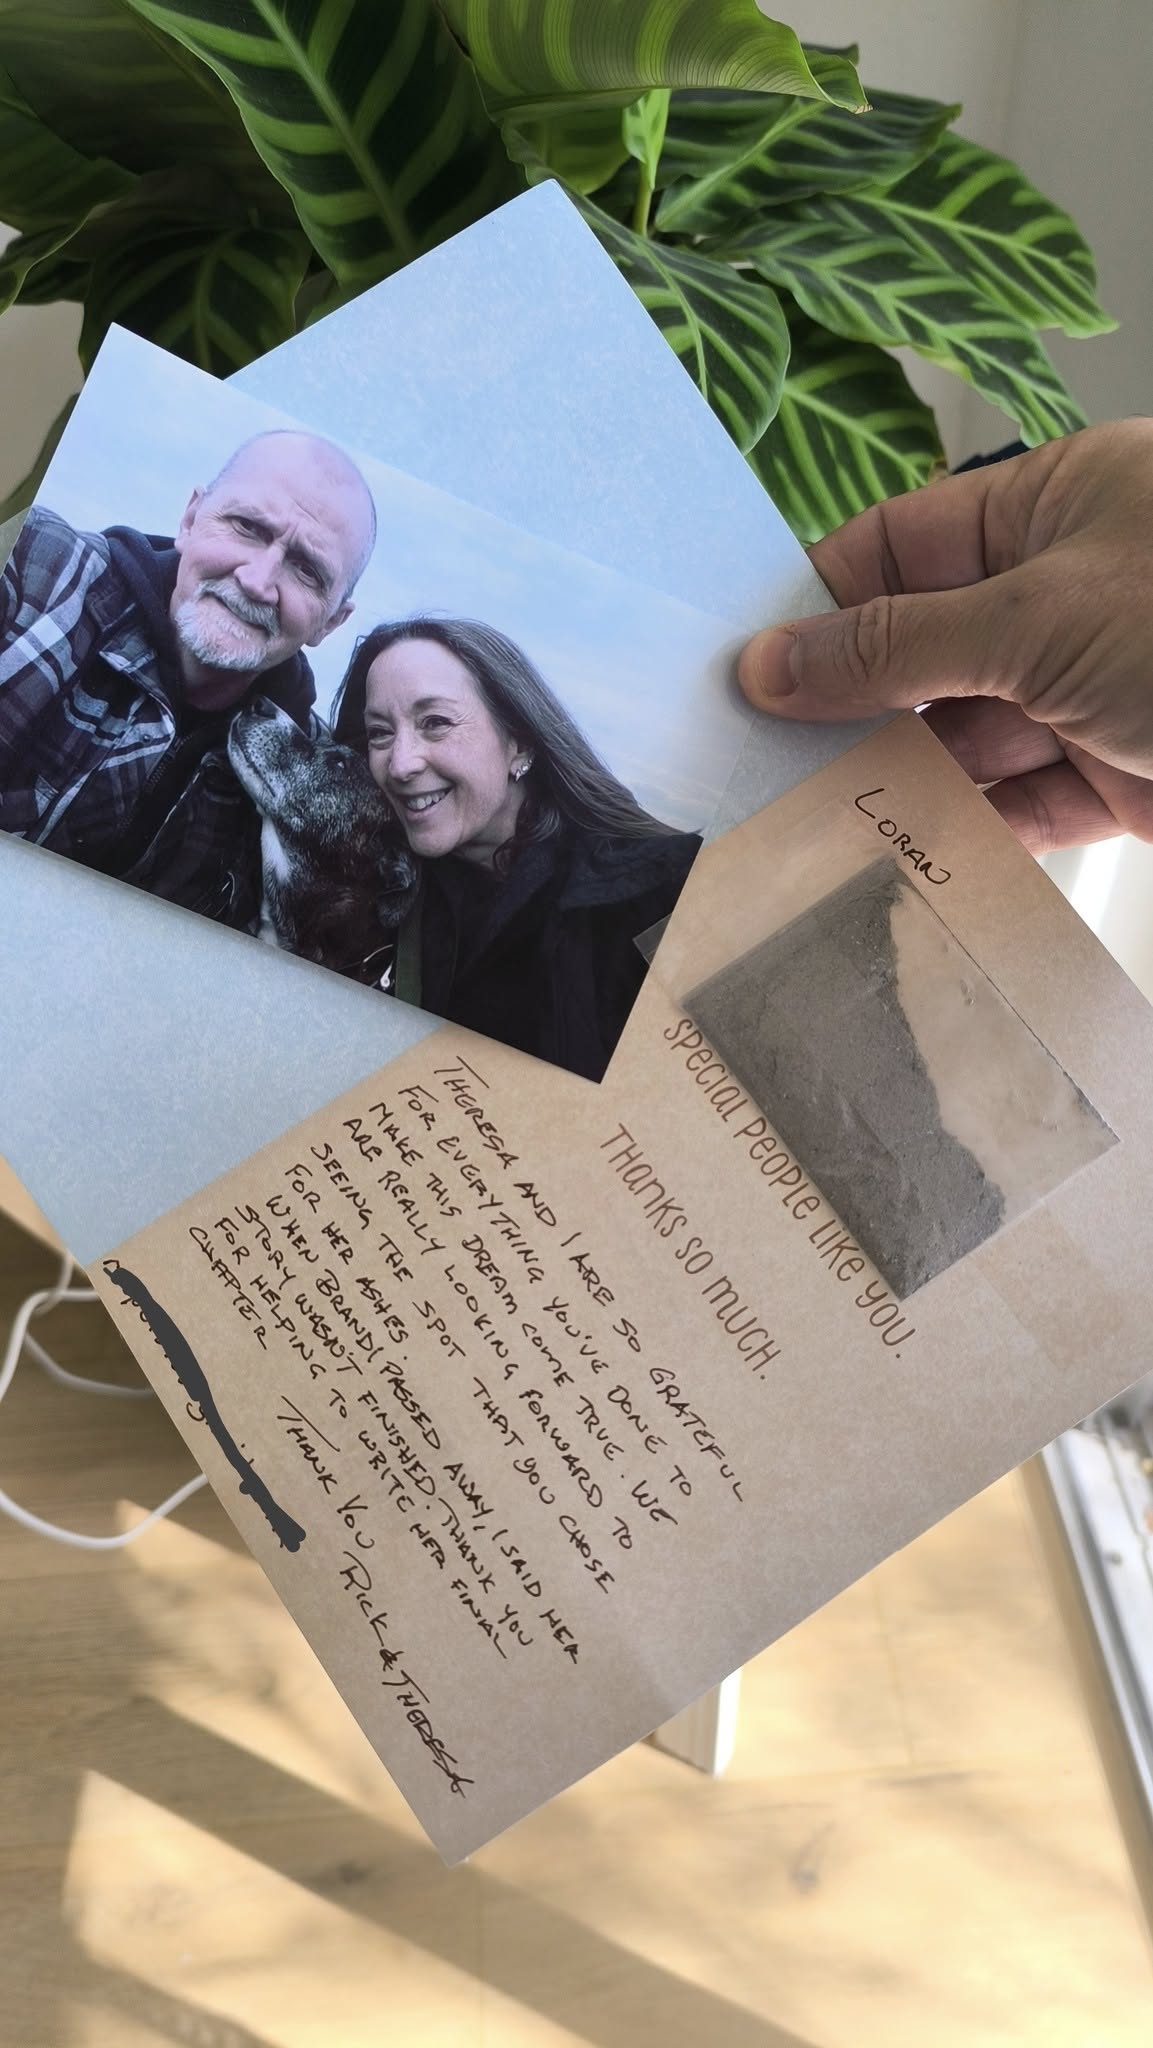 LORAN
SPECIAL PEOPLE LIKE YOU.
THANKS SO MUCH.
THERESA AND I ARE SO GRATEFUL
FOR EVERYTHING YOU'VE DONE TO
MAKE THIS DREAM COME TRUE. WE
ARE REALLY LOOKING FORWARD TO
SEEING THE SPOT THAT YOU CHOSE
FOR HER ASHES.
WHEN BRANDI PASSED AWAY, I SAID HER
STORY WASN'T FINISHED. THANK YOU
FOR HELPING TO WRITE HER FINAL
CHAPTER
THANK YOU RICK & THERESA